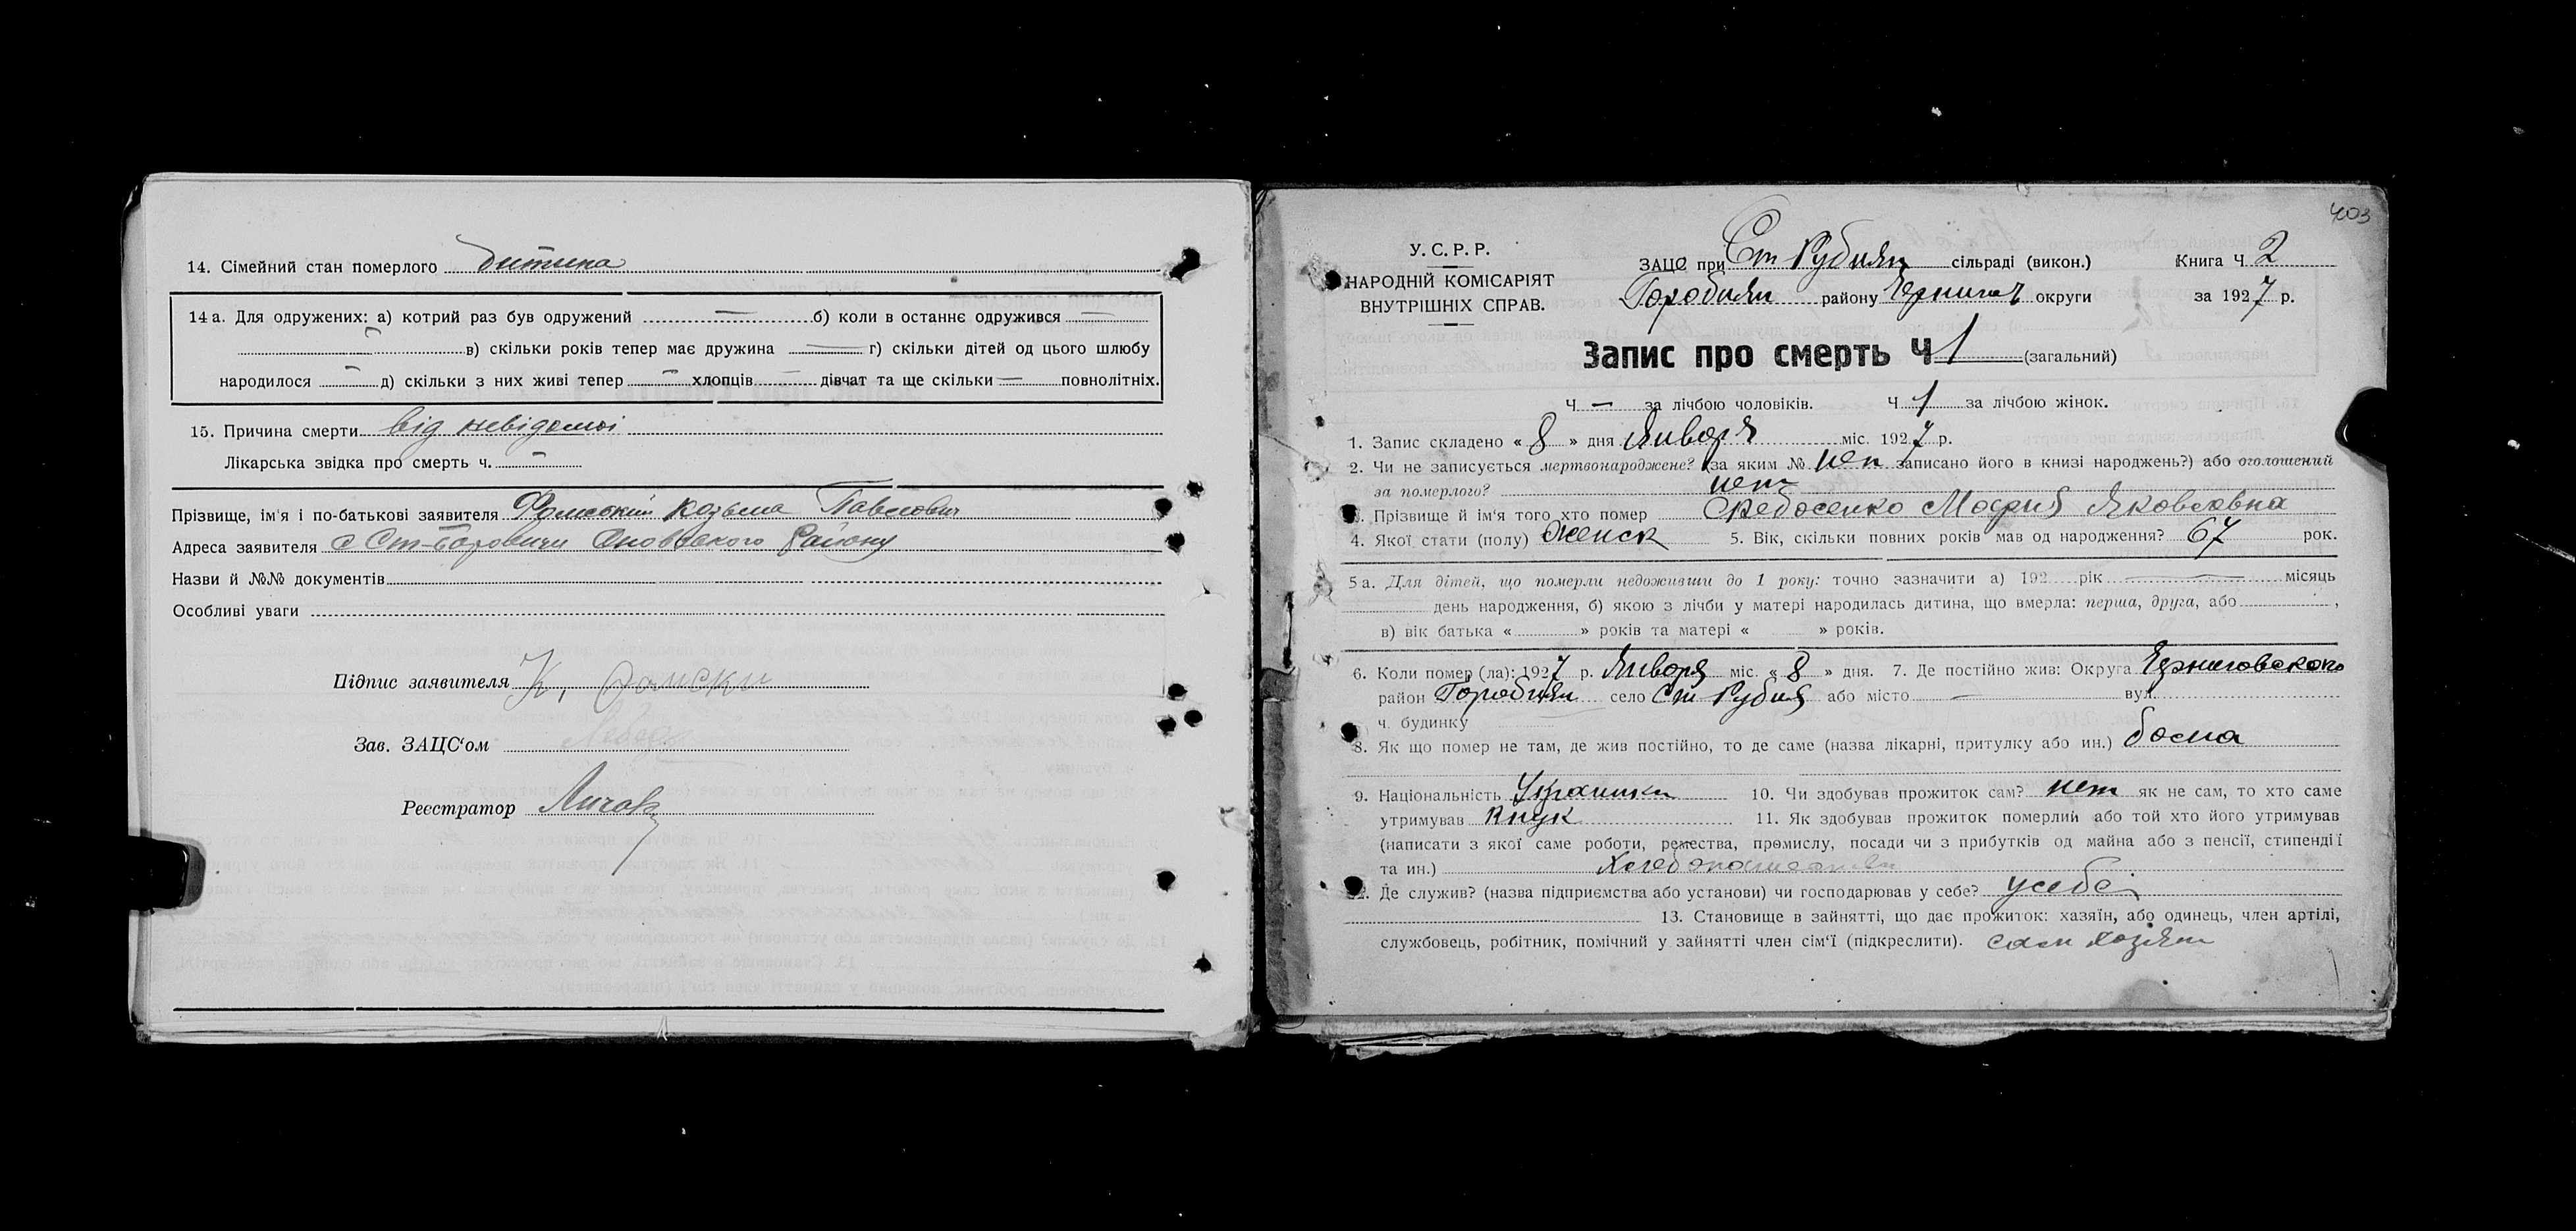 14. Сімейний стан померлого дитина
14 а. Для одружених: а) котрий раз був одружений — б) коли в останнє одружився —
— в) скільки років тепер має дружина — г) скільки дітей од цього шлюбу
народилося — д) скільки з них живі тепер — хлопців — дівчат та ще скільки — повнолітніх.
15. Причина смерти від невідомої
Лікарська звідка про смерть ч. —
Прізвище, ім'я і по-батькові заявителя Козьма Павлович
Адреса заявителя с Ст-Боровичи району
Назви й №№ документів
Особливі уваги
Підпис заявителя К.
Зав. ЗАЦС'ом
Реєстратор
403
У. С. Р. Р.
НАРОДНІЙ КОМІСАРІЯТ
ВНУТРІШНІХ СПРАВ.
ЗАЦС при Ст Рудням сільраді (викон.) Книга Ч 2
району Черниг округи за 1927 р.
Запис про смерть Ч 1 (загальний)
Ч — за лічбою чоловіків. Ч 1 за лічбою жінок.
1. Запис складено « 8 » дня Января міс. 1927 р.
2. Чи не записується мертвонароджене? (за яким № нет записано його в книзі народжень?) або оголошений
за померлого? нет
3. Прізвище й ім'я того хто помер Мария Яковлевна
4. Якої стати (полу) Женск 5. Вік, скільки повних років мав од народження? 67 рок.
5 а. Для дітей, що померли недоживши до 1 року: точно зазначити а) 192 рік — місяць
день народження, б) якою з лічби у матері народилась дитина, що вмерла: перша, друга, або ,
в) вік батька « » років та матері « » років.
6. Коли помер (ла): 1927 р. Января міс. « 8 » дня. 7. Де постійно жив: Округа Черниговского
район село Ст Рудня або місто — вул.
ч. будинку
8. Як що помер не там, де жив постійно, то де саме (назва лікарні, притулку або ин.) дома
9. Національність Украинка 10. Чи здобував прожиток сам? нет як не сам, то хто саме
утримував внук 11. Як здобував прожиток померлий або той хто його утримував
(написати з якої саме роботи, ремества, промислу, посади чи з прибутків од майна або з пенсії, стипендії
та ин.)
12. Де служив? (назва підприємства або установи) чи господарював у себе? у себе
13. Становище в зайнятті, що дає прожиток: хазяїн, або одинець, член артілі,
службовець, робітник, помічний у зайнятті член сім'ї (підкреслити). сам хозяин